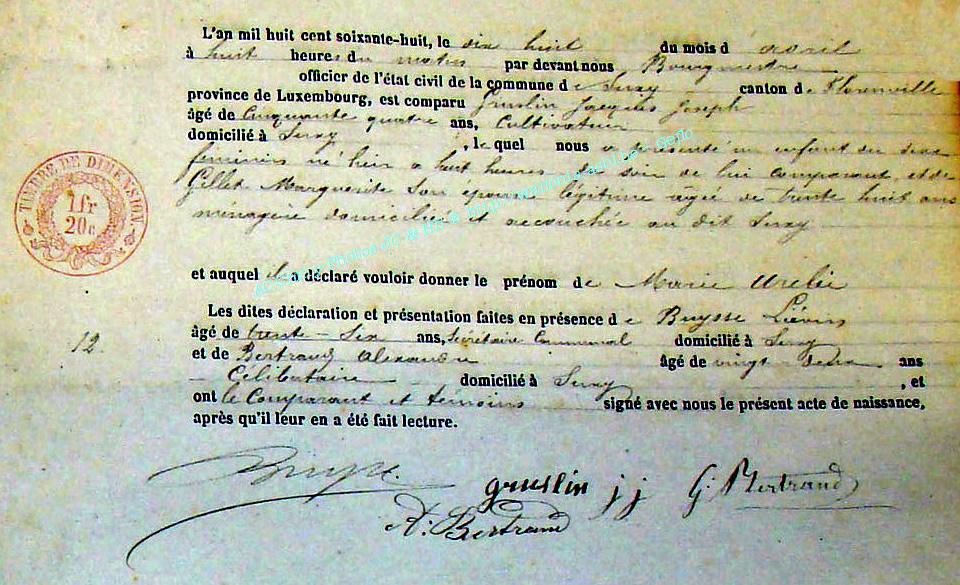 L'an mil huit cent soixante-huit, le dix huit du mois d avril
à huit heures du matin par devant nous Bourgmestre
officier de l'état civil de la commune de canton de Florenville
province de Luxembourg, est comparu Gruslin Jacques Joseph
âgé de Cinquante quatre ans, Cultivateur
domicilié à , le quel nous a présenté un enfant du sexe
feminin né hier a huit heures du soir de lui comparant et de
Gillet Marguerite son epouse légitime agée de trente huit ans
ménagère domiciliée et accouchée au dit
et auquel il a déclaré vouloir donner le prénom de Marie
Les dites déclaration et présentation faites en présence de Buysse Liévin
âgé de trente-six ans, Sécrétaire Communal domicilié à
et de Bertrand Alexandre âgé de vingt deux ans
Célibataire domicilié à , et
ont le Comparant et temoins signé avec nous le présent acte de naissance,
après qu'il leur en a été fait lecture.
12.
TIMBRE DE DIMENSION
1 fr
20 c
Buysse
gruslin j j
G. Bertrand
A. Bertrand